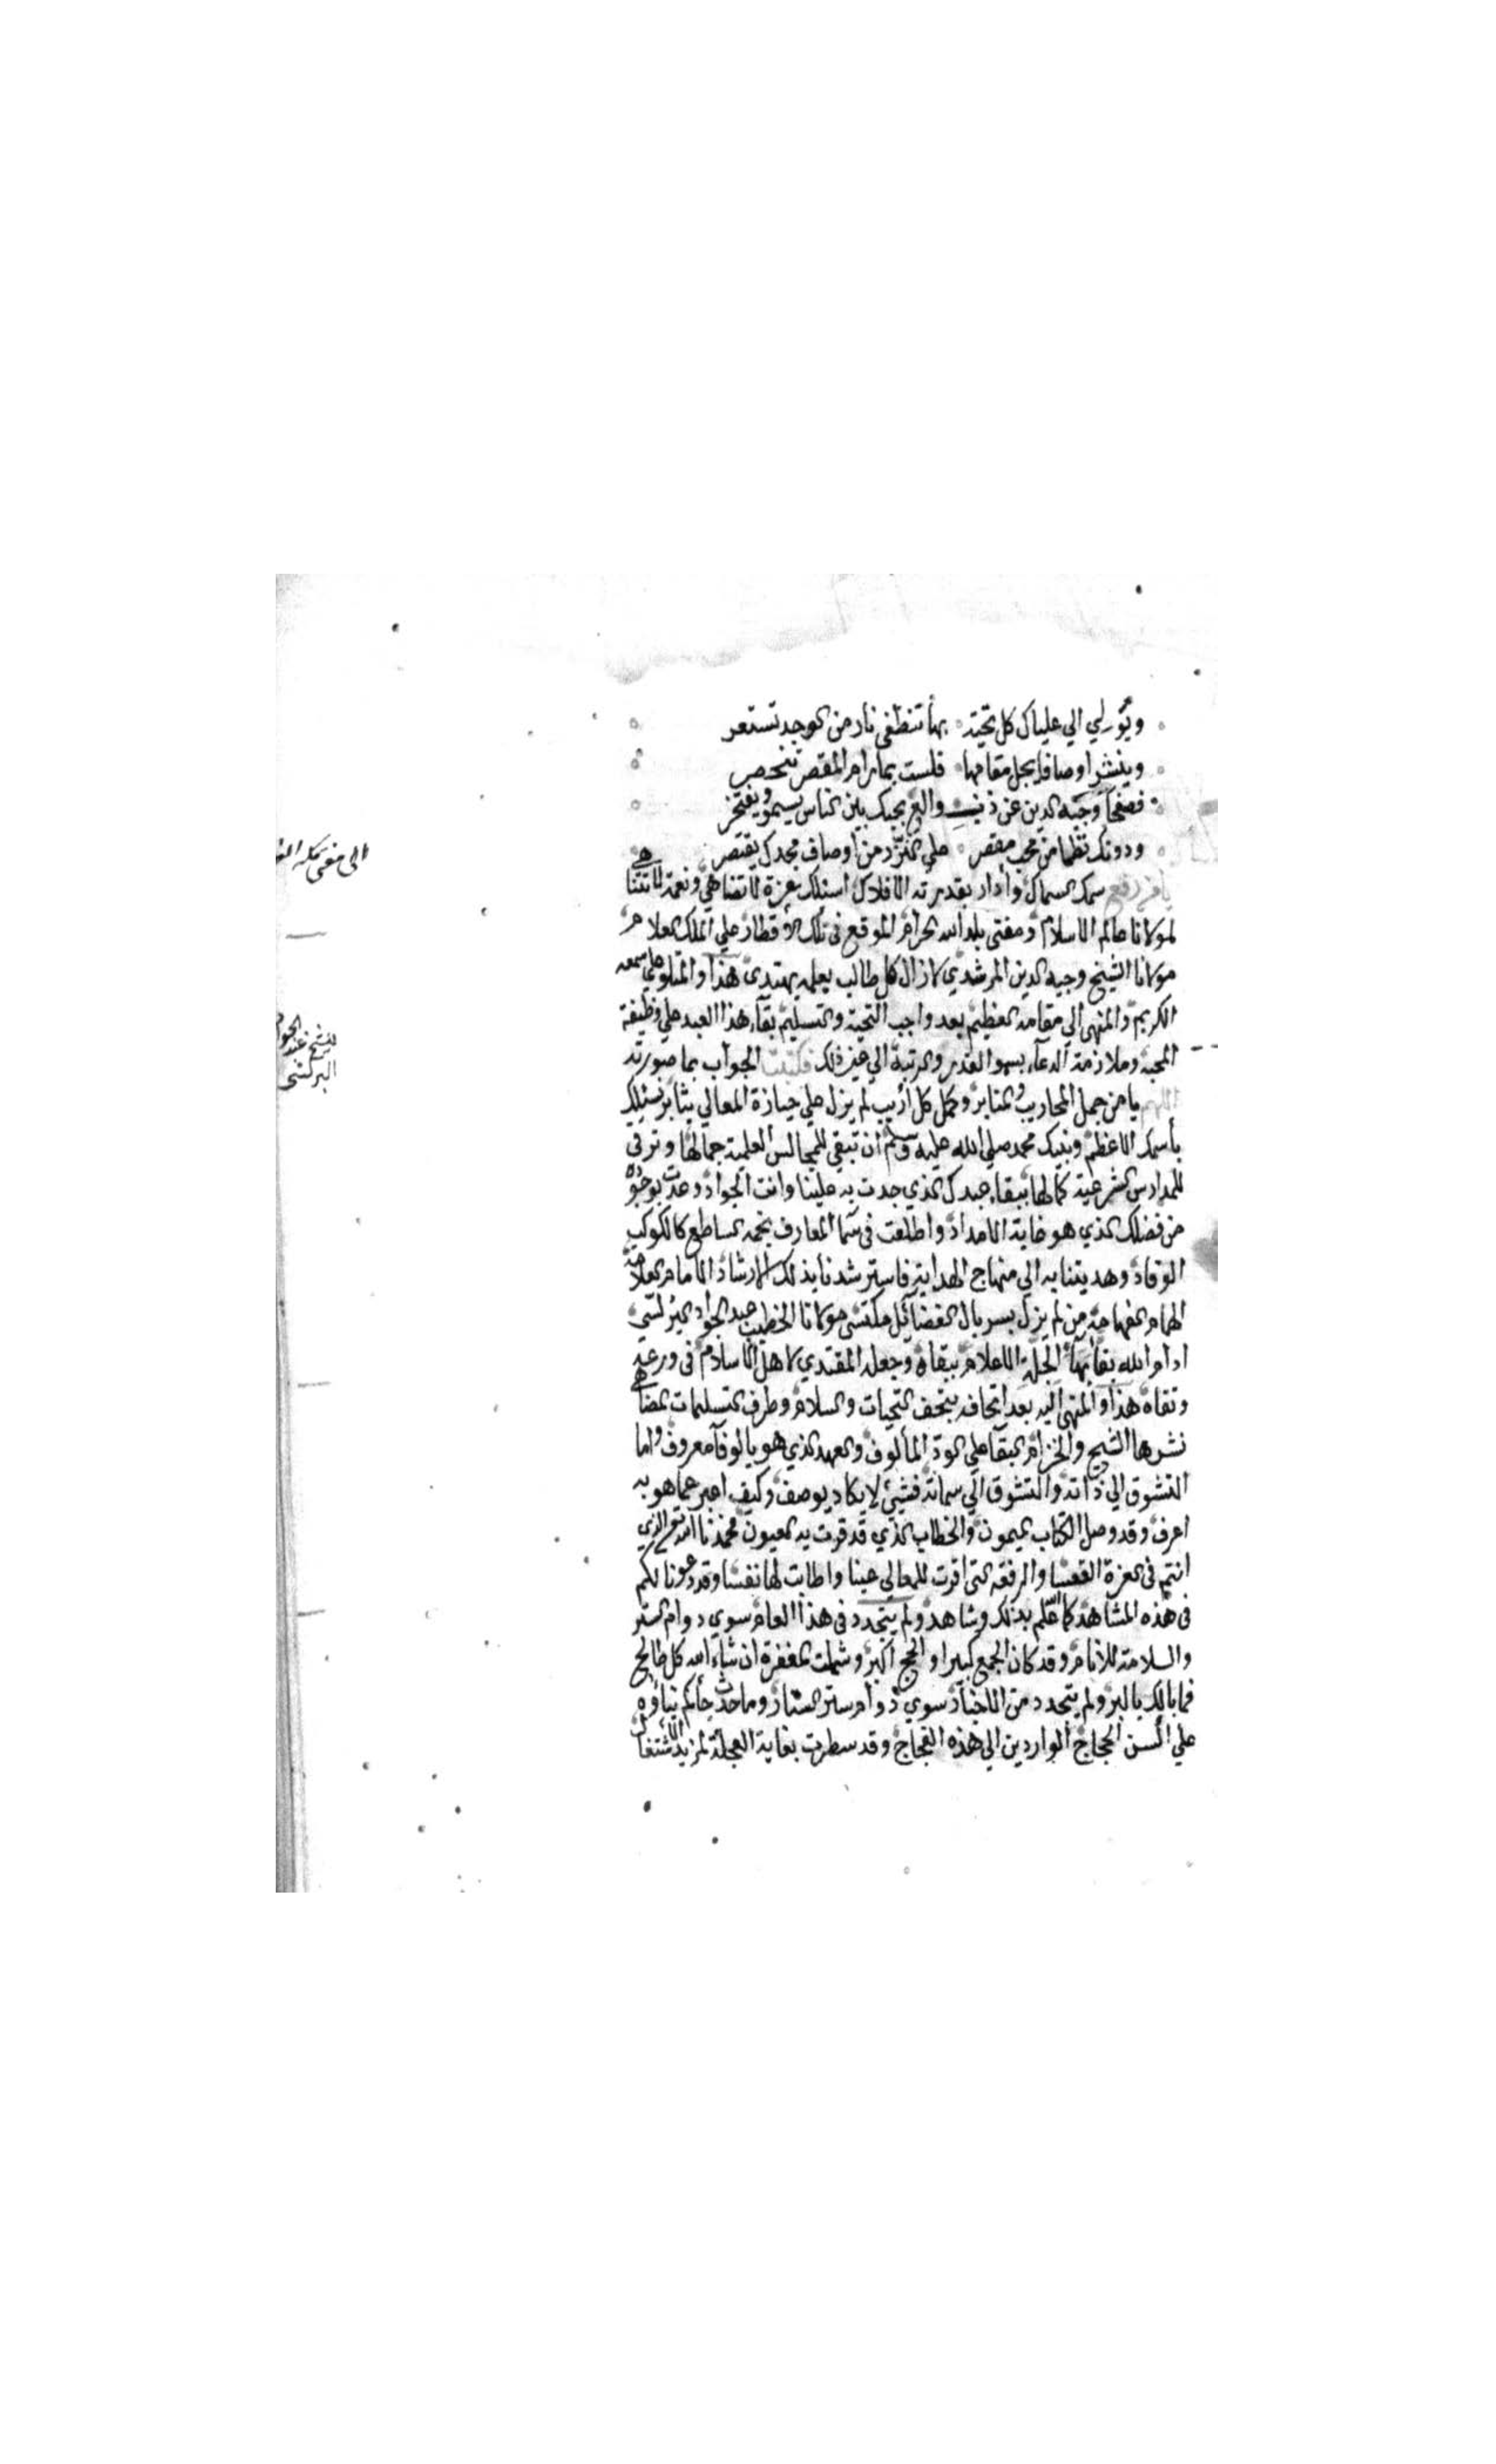 ويُهدي الي علياك كل تحية بها تنطفي نار من الوجد تستعر
وينشر اوصافا يجل مقامها فلست بما رام المقصر تنحصر
فصفحا وجيه الدين عن ذنب والع بحبك بين الناس يسمو ويفتخر
ودونك نظما من محب مقصر علي النزر من اوصاف مجدك يقتصر
يا من رفع سمك السماك وأدار بقدرته الافلاك اسئلك بعزة لا تضاهي ونعمة لا تتناهي
لمولانا عالم الاسلام ومفتي بلد الله الحرام الموقع في تلك الاقطار علي الملك العلام
مولانا الشيخ وجيه الدين المرشدي لازال كل طالب بعلمه يهتدي هذا والمتلو علي سمعه
الكريم والمنهي الي مقامه العظيم بعد واجب التحية والتسليم بقاء هذا العبد علي وظيفة
المحبة وملازمة الدعاء بسمو القدر والمرتبة الي غير ذلك فكتبت الجواب بما صورته
اللهم يا من جمل المحاريب والمنابر وكمل كل أديب لم يزل علي حيازة المعالي يثابر نسئلك
بأسمك الاعظم ونبيك محمد صلي الله عليه وسلم أن تبقي للمجالس العلمية جمالها وترقي
للمدارس الشرعية كمالها ببقاء عبدك الذي جدت به علينا وانت الجواد وعدت بوجوده
من فضلك الذي هو غاية الامداد واطلعت في سما المعارف نجمه الساطع كالكوكب
الوقاد وهديتنا به الي منهاج الهداية فاسترشدنا بذلك الارشاد الامام العلامة
الهمام الفهامة من لم يزل بسربال الفضائل مكتسي مولانا الخطيب عبد الجواد البرلسي
ادام الله بقا بهاء الجلة الاعلام ببقاه وجعله المقتدي لاهل الاسلام في ورعه
وتقاه هذا والمنهي اليه بعد اتحافه بتحف التحيات والسلام وطرف التسليمات المضاهي
نشرها الشيح والخزام البقا علي الود المألوف والعهد الذي هو بالوفا معروف واما
التشوق الي ذاته والتشوق الي سماته فشيئ لا يكاد يوصف وكيف اعبر عما هو به
اعرف وقد وصل الكتاب الميمون والخطاب الذي قد قرت به العيون فحمدنا الله تع الذي
انتم في العزة القعسا والرفعه التي اقرت للمعالي عينا واطابت لها نفسا وقد دعونا لكم
في هذه المشاهد كما علم بذلك وشاهد ولم يتجدد في هذا العام سوي دوام الستر
والسلامة للانام وقد كان الجمع كبيرا والحج اكبر وشملت المغفرة ان شاء الله كل طالح
فما بالك بالبر ولم يتجدد من الاخبار سوي دوام ستر الستار وما حدث جأكم نباؤه
علي ألسن الحجاج الواردين الي هذه الفجاج وقد سطرت بغاية العجلة لمزيد الاشتغال
الى مفتى مكه
للشيخ عبد الجواد
البرلسى